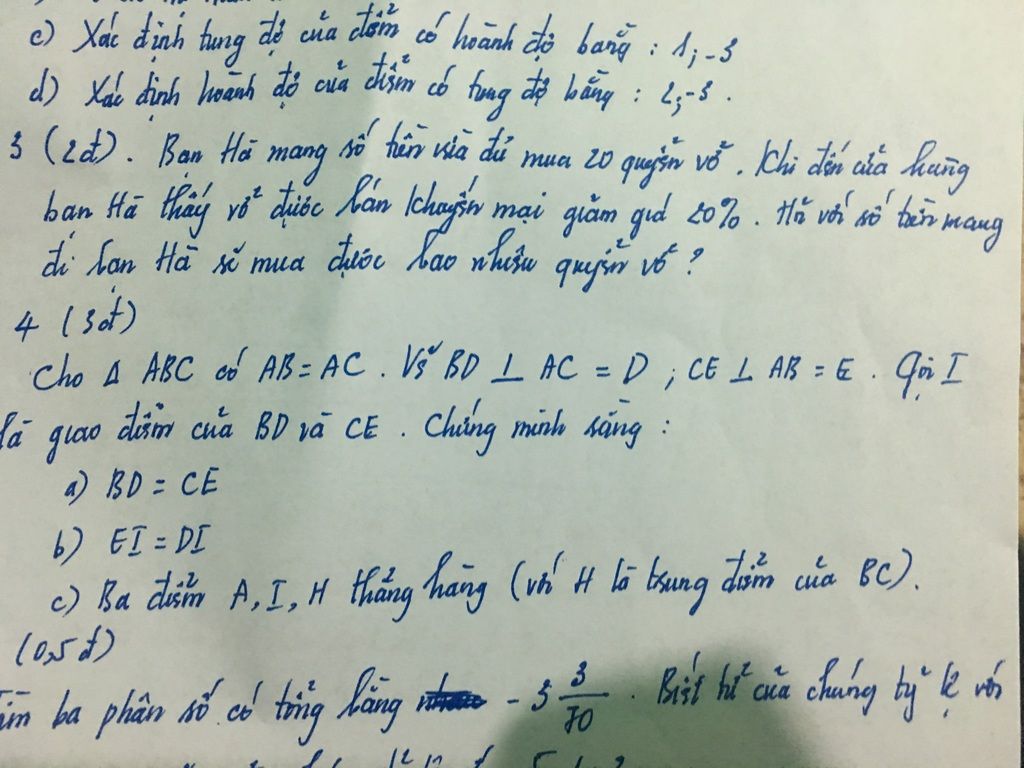 c) Xác định tung độ của điểm có hoành độ bằng : 1; -3
d) Xác định hoành độ của điểm có tung độ bằng : 2; -3 .
3 (2đ) . Bạn Hà mang số tiền vừa đủ mua 20 quyển vở . Khi đến cửa hàng
bạn Hà thấy vở được bán khuyến mại giảm giá 20% . Hỏi với số tiền mang
đi bạn Hà sẽ mua được bao nhiêu quyển vở ?
4 (3đ)
Cho Δ ABC có AB = AC . Vẽ BD ⊥ AC = D ; CE ⊥ AB = E . Gọi I
là giao điểm của BD và CE . Chứng minh rằng :
a) BD = CE
b) EI = DI
c) Ba điểm A, I, H thẳng hàng (với H là trung điểm của BC) .
(0,5đ)
Tìm ba phân số có tổng bằng - 3 3/70 . Biết tử của chúng tỷ lệ với